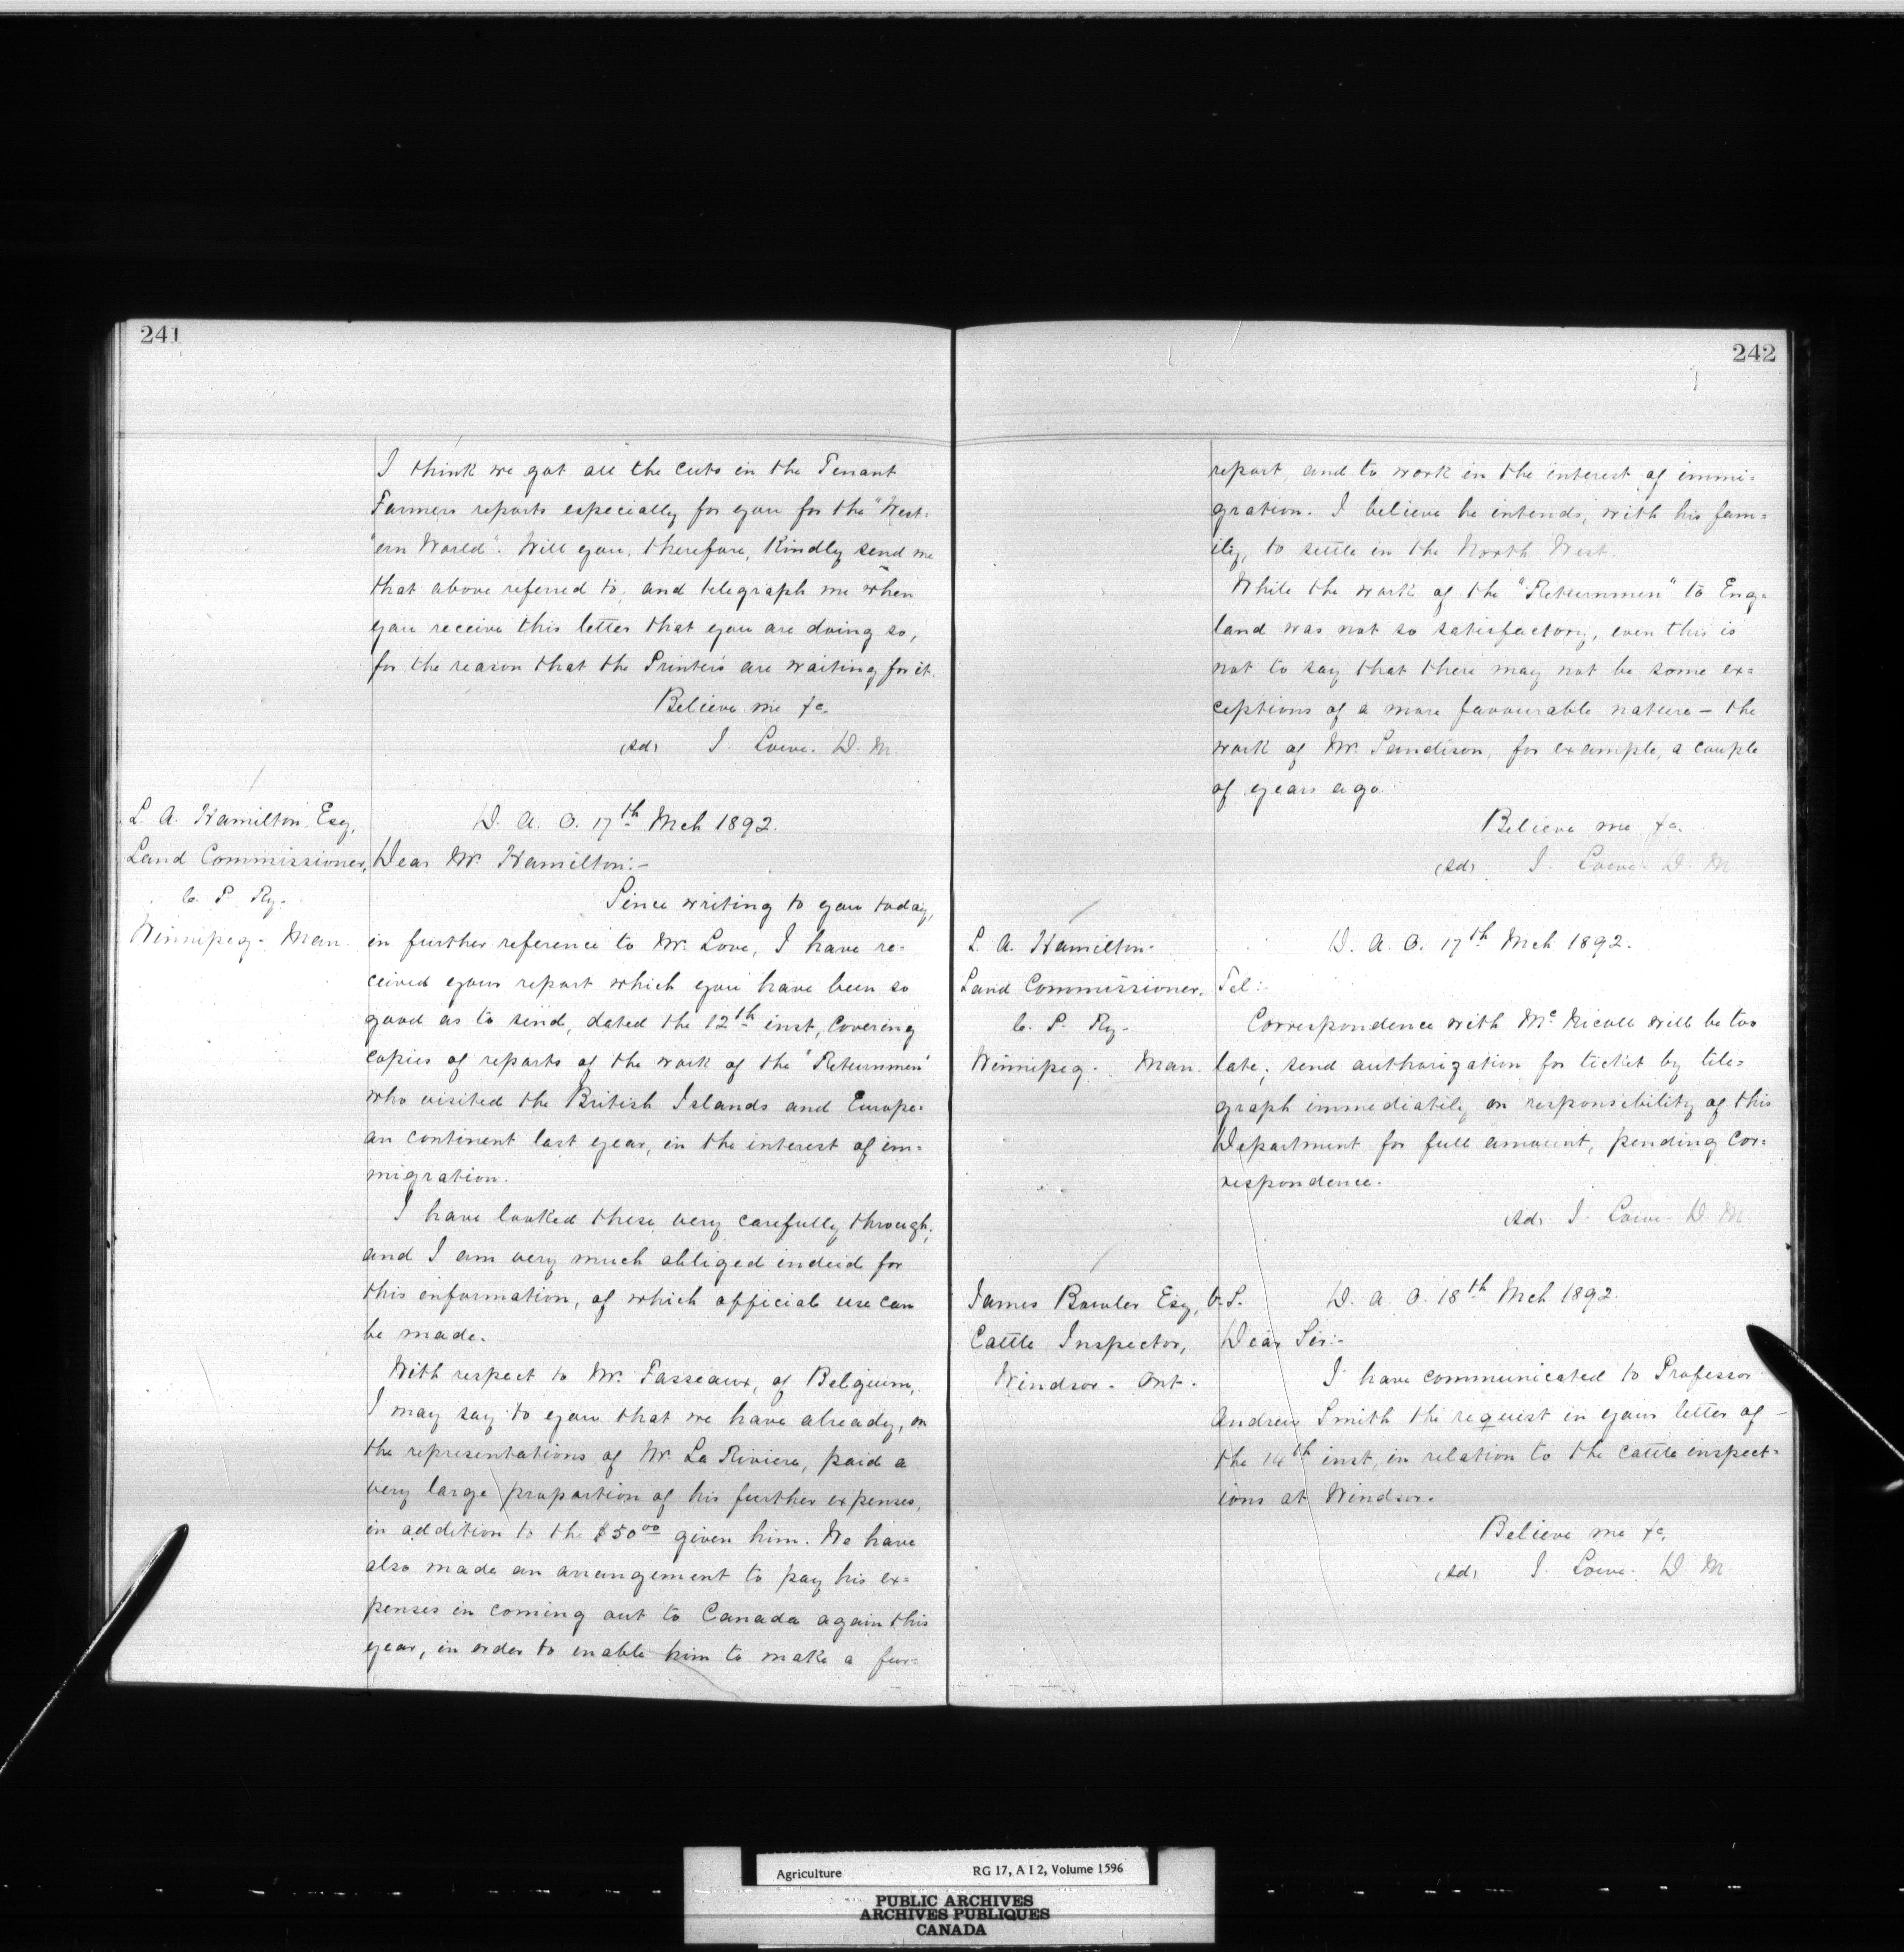 241
I think we got all the cuts in the Tenant
Farmers reports especially for you for the "West-
"ern World". Will you, therefore, kindly send me
that above referred to, and telegraph me when
you receive this letter that you are doing so,
for the reason that the Printers are waiting for it.
Believe me &c.
(Sd) J. Lowe. D. M.
L. A. Hamilton Esq,
Land Commissioner,
C. P. Ry-
Winnipeg- Man.
D. A. O. 17th Mch 1892.
Dear Mr. Hamilton:-
Since writing to you today,
in further reference to Mr. Love, I have re=
ceived your report which you have been so
good as to send, dated the 12th inst, covering
copies of reports of the work of the "Returnmen"
who visited the British Islands and Europe-
an continent last year, in the interest of im=
migration.
I have looked these very carefully through,
and I am very much obliged indeed for
this information, of which official use can
be made.
With respect to Mr. Fasseaux, of Belgium,
I may say to you that we have already, on
the representations of Mr. La Riviere, paid a
very large proportion of his further expenses,
in addition to the $50.00 given him. We have
also made an arrangement to pay his ex=
penses in coming out to Canada again this
year, in order to enable him to make a fur=
242
report, and to work in the interest of immi=
gration. I believe he intends, with his fam=
ily, to settle in the North West.
While the work of the "Returnmen" to Eng=
land was not so satisfactory, even this is
not to say that there may not be some ex=
ceptions of a more favourable nature - the
work of Mr. Sandison, for example, a couple
of years ago.
Believe me &c.
(Sd) J. Lowe. D. M.
L. A. Hamilton-
Land Commissioner.
C. P. Ry-
Winnipeg- Man.
D. A. O. 17th Mch 1892.
Tel:-
Correspondence with McNicoll will be too
late; send authorization for ticket by tele=
graph immediately on responsibility of this
Department for full amount, pending cor=
respondence.
(Sd) J. Lowe. D. M.
James Bowler Esq, V. S.
Cattle Inspector,
Windsor. Ont.
D. A. O. 18th Mch 1892.
Dear Sir:-
I have communicated to Professor
Andrew Smith the request in your letter of -
the 14th inst, in relation to the cattle inspect=
ions at Windsor.
Believe me &c,
(Sd) J. Lowe. D. M.
Agriculture RG 17, A I 2, Volume 1596
PUBLIC ARCHIVES
ARCHIVES PUBLIQUES
CANADA